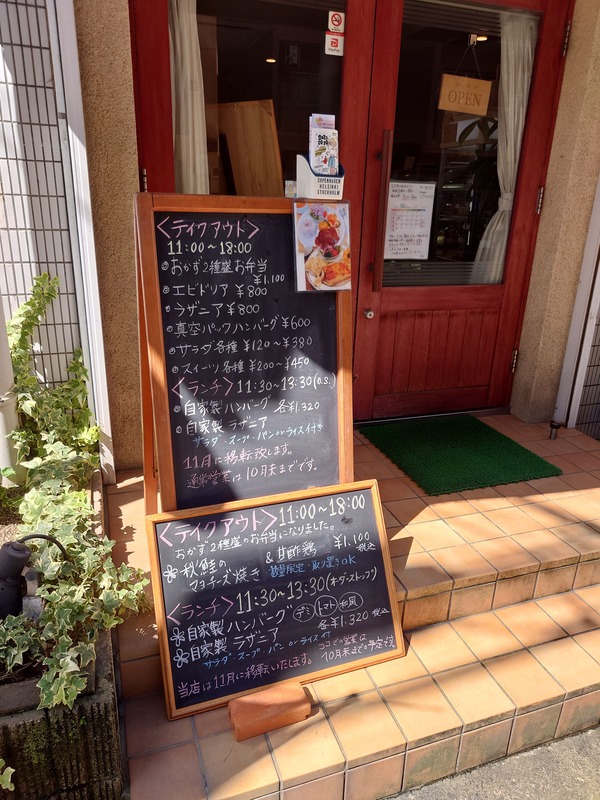 PayPay
OPEN
COPENHAGEN
HELSINKI
STOCKHOLM
<テイクアウト>
11:00~18:00
◎おかず2種盛お弁当
¥1,100
◎エビドリア ¥800
◎ラザニア ¥800
◎真空パックハンバーグ ¥600
◎サラダ各種 ¥120~¥380
◎スイーツ各種 ¥200~¥450
<ランチ>11:30~13:30(o.s.)
◎自家製ハンバーグ 各¥1,320
◎自家製ラザニア
サラダ・スープ・パンorライス付き
11月に移転致します。
通常営業は10月末までです。
<テイクアウト>11:00~18:00
おかず2種盛のお弁当になりました。
秋鮭のマヨチーズ焼き & 甘酢鶏 ¥1,100税込
数量限定・取り置きOK
<ランチ>11:30~13:30(オーダーストップ)
自家製ハンバーグ デミ トマト 和風
自家製ラザニア 各¥1,320税込
サラダ・スープ・パンorライス付
当店は11月に移転いたします。 ココでの営業は10月末までの予定です。